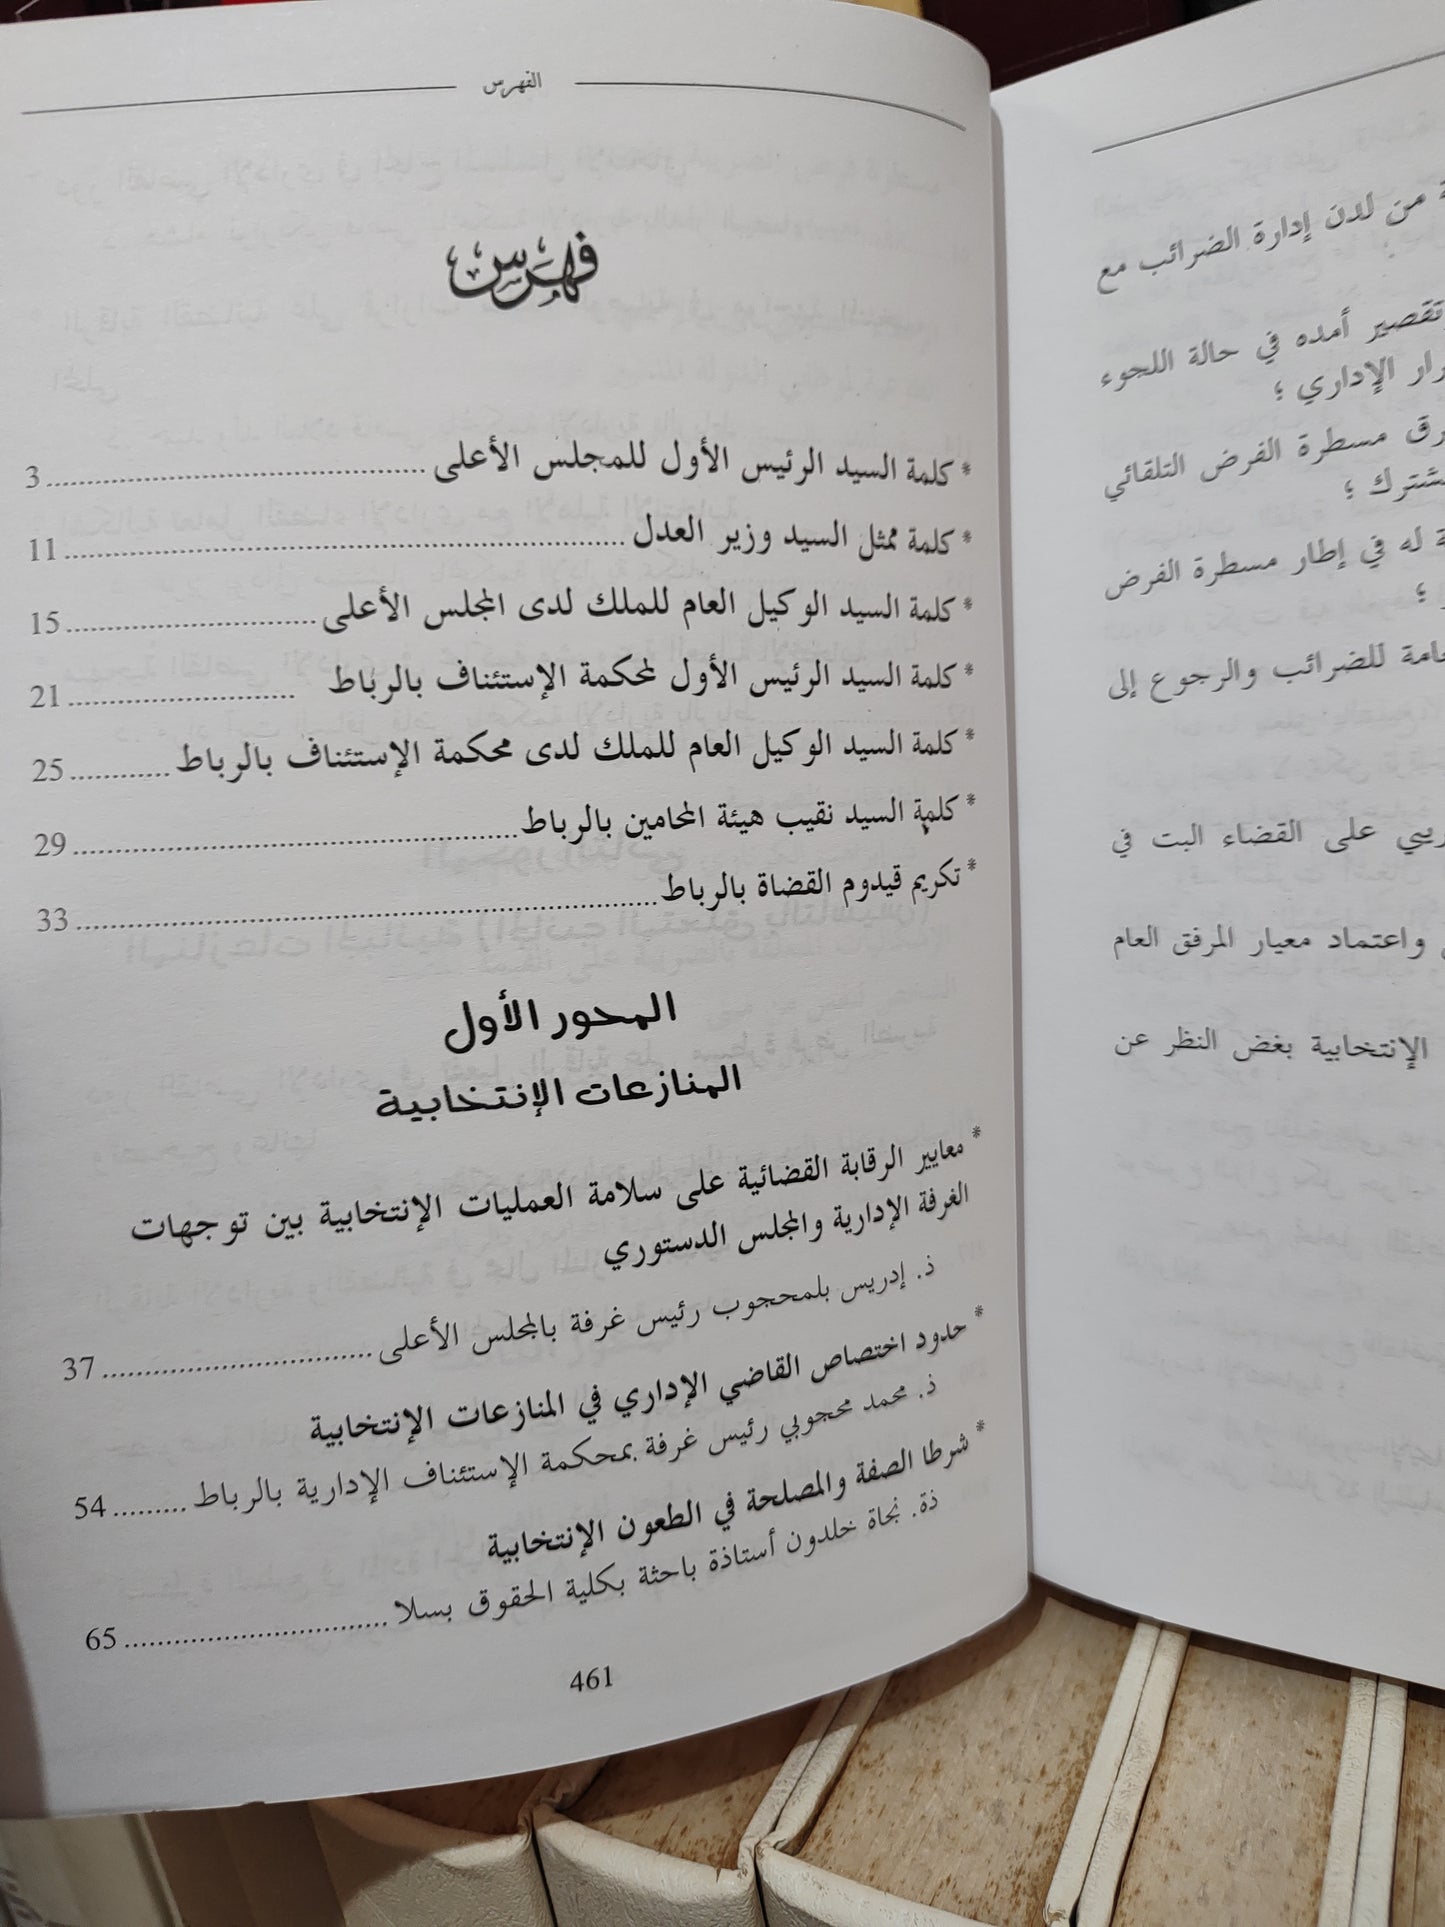 الفهرس
فهرس
* كلمة السيد الرئيس الأول للمجلس الأعلى ........ 3
* كلمة ممثل السيد وزير العدل ........ 11
* كلمة السيد الوكيل العام للملك لدى المجلس الأعلى ........ 15
* كلمة السيد الرئيس الأول لمحكمة الإستئناف بالرباط ........ 21
* كلمة السيد الوكيل العام للملك لدى محكمة الإستئناف بالرباط ........ 25
* كلمة السيد نقيب هيئة المحامين بالرباط ........ 29
* تكريم قيدوم القضاة بالرباط ........ 33
المحور الأول
المنازعات الإنتخابية
* معايير الرقابة القضائية على سلامة العمليات الإنتخابية بين توجهات
الغرفة الإدارية والمجلس الدستوري
ذ. إدريس بلمحجوب رئيس غرفة بالمجلس الأعلى ........ 37
* حدود اختصاص القاضي الإداري في المنازعات الإنتخابية
ذ. محمد محجوبي رئيس غرفة بمحكمة الإستئناف الإدارية بالرباط ........ 54
* شرطا الصفة والمصلحة في الطعون الإنتخابية
ذة. نجاة خلدون أستاذة باحثة بكلية الحقوق بسلا ........ 65
461
من لدن إدارة الضرائب مع
تقصير أمده في حالة اللجوء
الإداري ؛
مسطرة الفرض التلقائي
له في إطار مسطرة الفرض
للضرائب والرجوع إلى
على القضاء البت في
واعتماد معيار المرفق العام
الإنتخابية بغض النظر عن